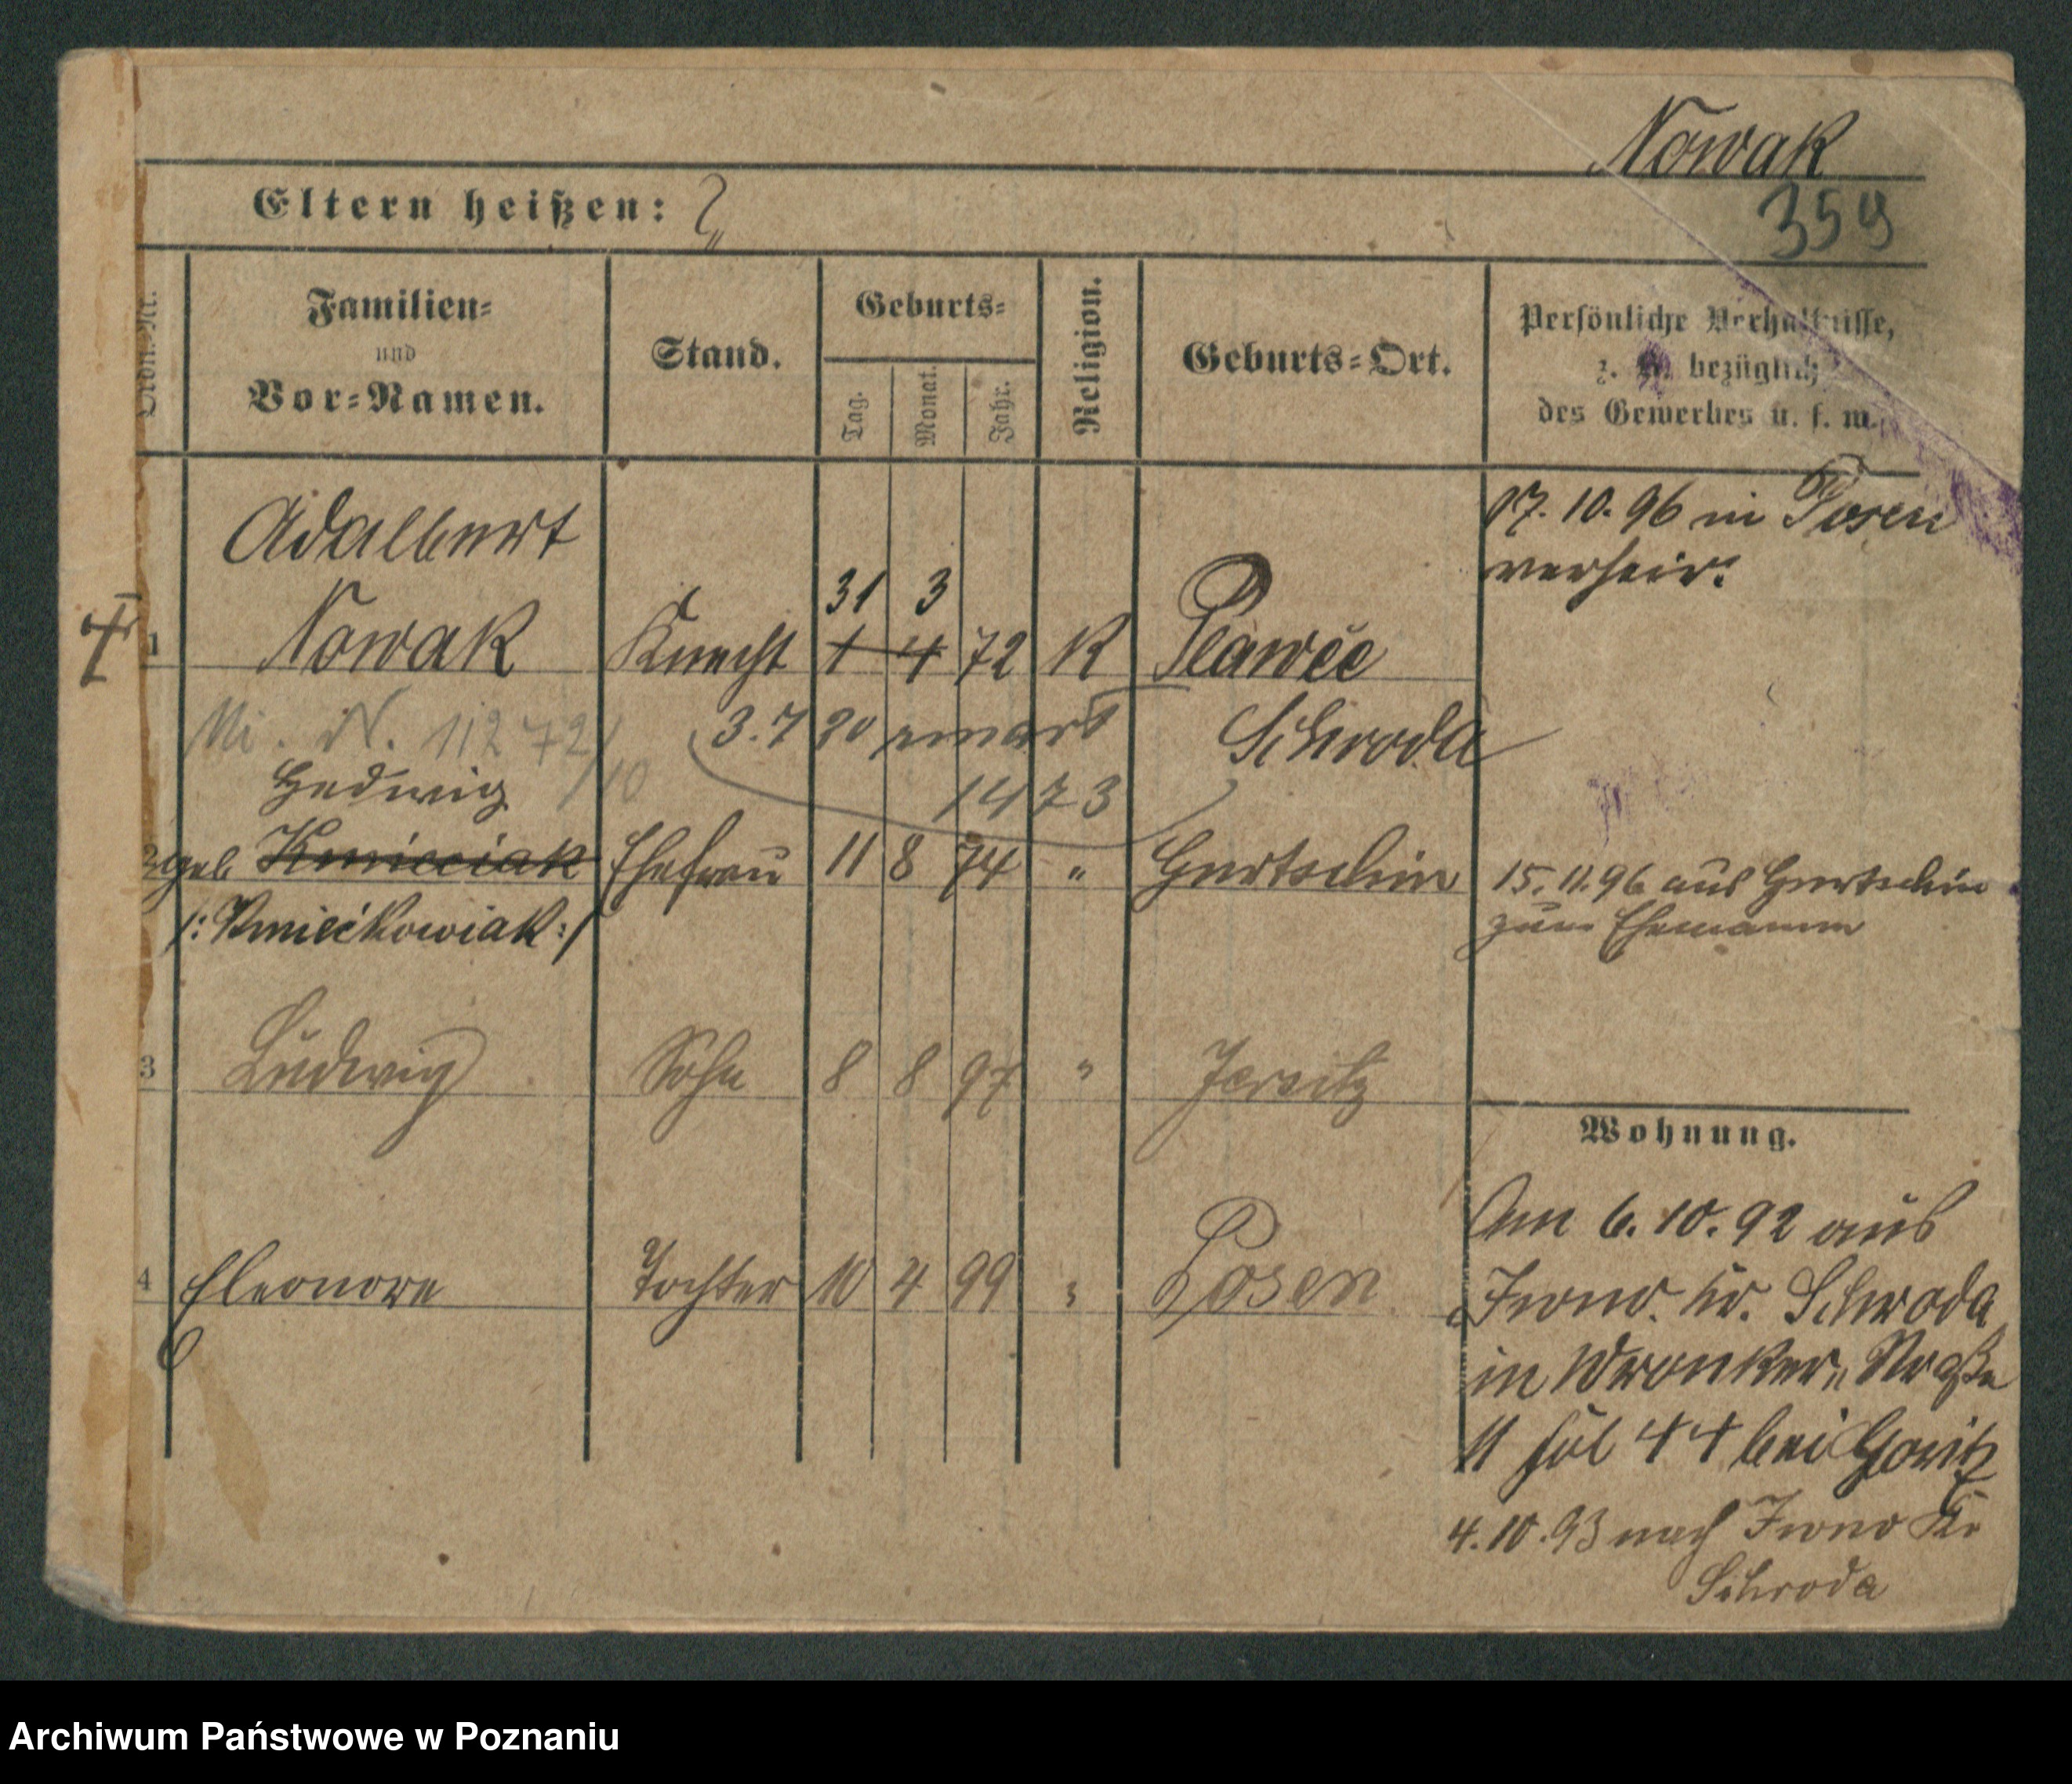 Nowak
Eltern heißen: ?
359
Ordn.-Nr.
Familien-
und
Vor-Namen.
Stand.
Geburts-
Tag.
Monat.
Jahr.
Religion.
Geburts-Ort.
Persönliche Verhältnisse,
z. B. bezüglich
des Gewerbes u. s. w.
Adalbert
31 3
1 Nowak Knecht 1 4 72 K Pławce
Schroda
17. 10. 96 in Posen
verheir.
Mi. N. 112 72/10
3. 7 20
14 73
Hedwig
2 geb. Kmieciak Ehefrau 11 8 74 " Gurtschin
/: Kmiećkowiak :/
15. 11. 96 aus Gurtschin
zum Ehemann
3 Ludwig Sohn 8 8 97 " Jersitz
4 Eleonore Tochter 10 4 99 " Posen
Wohnung.
Am 6. 10. 92 aus
Iwno. Kr. Schroda
in Wronker Straße
11 bei
4. 10. 93 nach Iwno Kr
Schroda
Archiwum Państwowe w Poznaniu